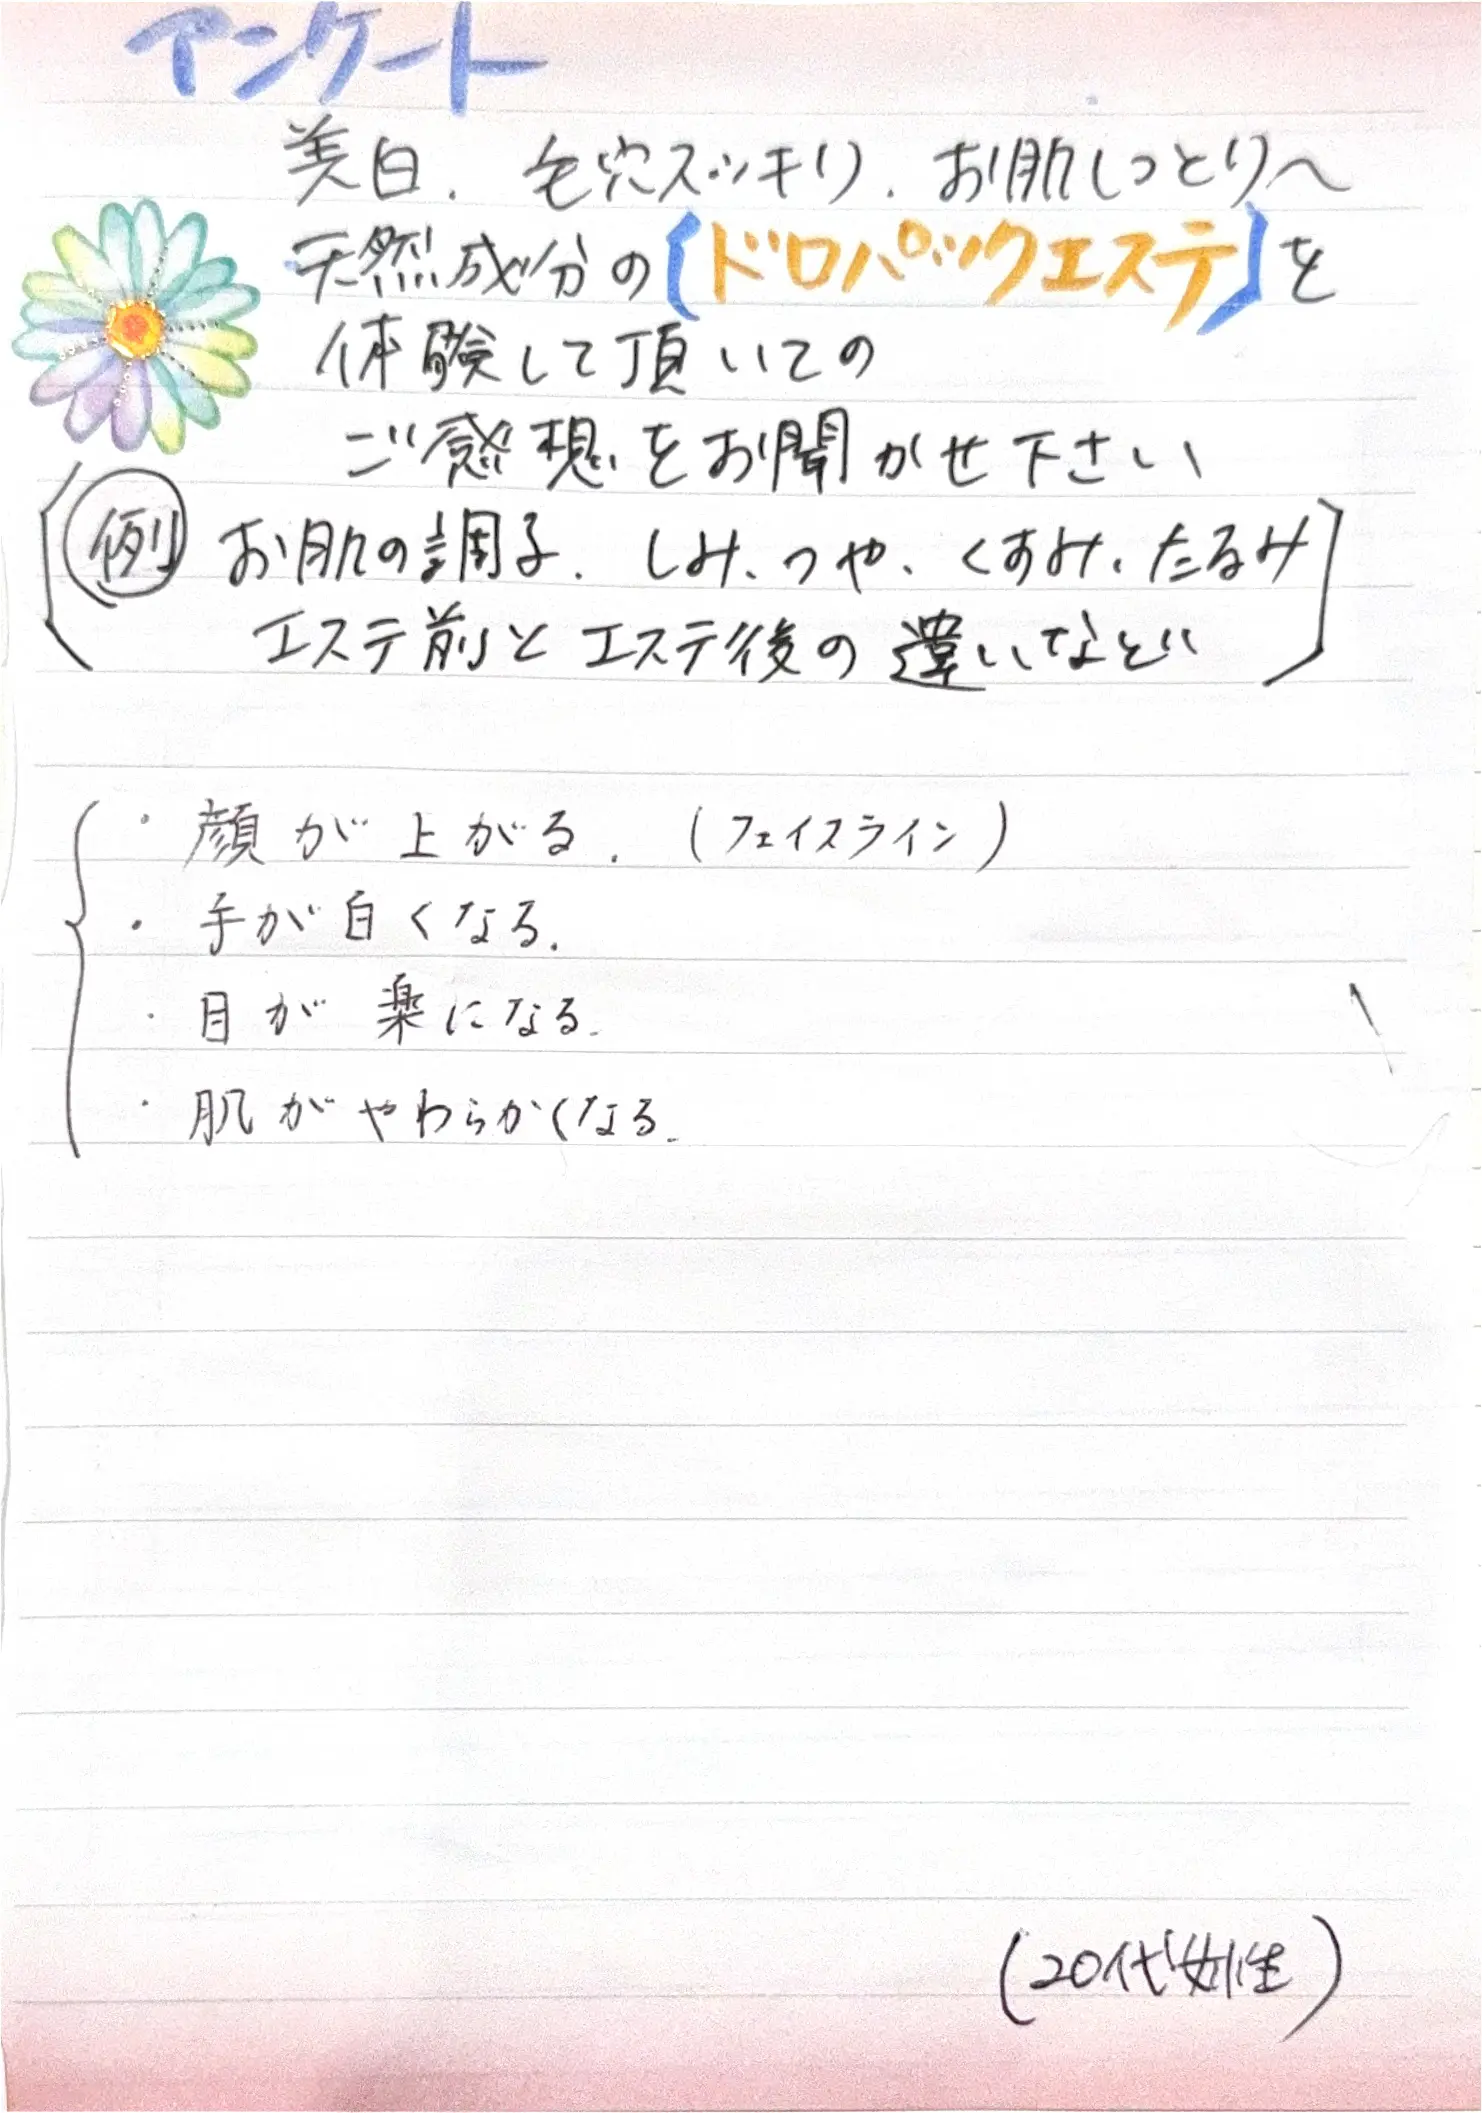 アンケート
美白．毛穴スッキリ．お肌しっとりへ
天然成分の〔ドロパックエステ〕を
体験して頂いての
ご感想をお聞かせ下さい
例 お肌の調子．しみ、つや、くすみ、たるみ
エステ前とエステ後の違いなどい
・顔が上がる．（フェイスライン）
・手が白くなる．
・目が楽になる．
・肌がやわらかくなる．
（20代女性）